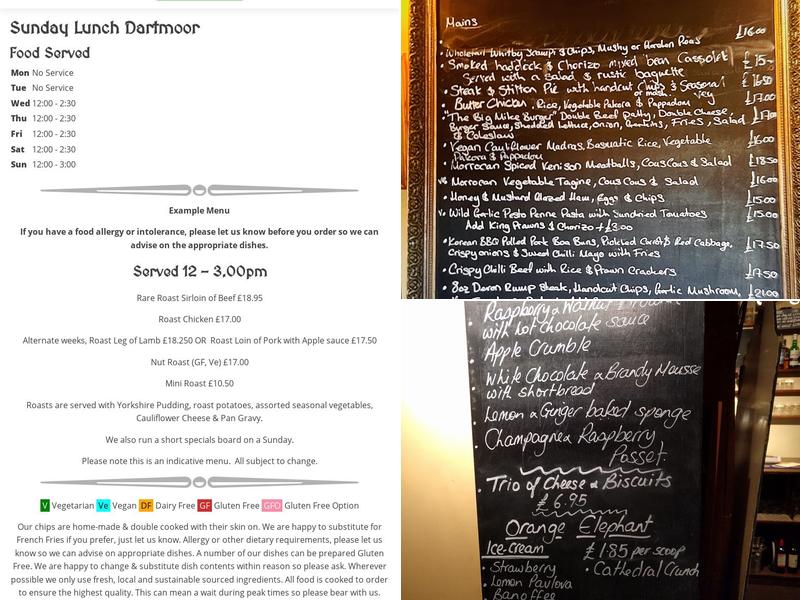 Sunday Lunch Dartmoor
Food Served
Mon No Service
Tue No Service
Wed 12:00 - 2:30
Thu 12:00 - 2:30
Fri 12:00 - 2:30
Sat 12:00 - 2:30
Sun 12:00 - 3:00
Example Menu
If you have a food allergy or intolerance, please let us know before you order so we can
advise on the appropriate dishes.
Served 12 – 3.00pm
Rare Roast Sirloin of Beef £18.95
Roast Chicken £17.00
Alternate weeks, Roast Leg of Lamb £18.250 OR Roast Loin of Pork with Apple sauce £17.50
Nut Roast (GF, Ve) £17.00
Mini Roast £10.50
Roasts are served with Yorkshire Pudding, roast potatoes, assorted seasonal vegetables,
Cauliflower Cheese & Pan Gravy.
We also run a short specials board on a Sunday.
Please note this is an indicative menu. All subject to change.
V Vegetarian Ve Vegan DF Dairy Free GF Gluten Free GFO Gluten Free Option
Our chips are home-made & double cooked with their skin on. We are happy to substitute for
French Fries if you prefer, just let us know. Allergy or other dietary requirements, please let us
know so we can advise on appropriate dishes. A number of our dishes can be prepared Gluten
Free. We are happy to change & substitute dish contents within reason so please ask. Wherever
possible we only use fresh, local and sustainable sourced ingredients. All food is cooked to order
to ensure the highest quality. This can mean a wait during peak times so please bear with us.
Mains
Wholetail Whitby Scampi & Chips, Mushy or Garden Peas £16.00
Smoked haddock & Chorizo mixed bean Cassolet £15-
Served with a Salad & rustic baguette
Steak & Stilton Pie with handcut Chips & Seasonal £16.50
or mash. Veg
Butter Chicken, Rice, Vegetable Pakora & Pappadom £17.00
"The Big Mike Burger" Double Beef patty, Double Cheese,
Burger Sauce, Shredded Lettuce, Onion, Gherkins, Fries, Salad £17.00
& Coleslaw
Vegan Cauliflower Madras, Basmatic Rice, Vegetable £16.00
Pakora & Pappadom
Morrocan Spiced Venison Meatballs, CousCous & Salad £18.50
Ve Morrocan Vegetable Tagine, Cous Cous & Salad £16.00
Honey & Mustard Glazed Ham, Eggs & Chips £15.00
Ve Wild Garlic Pesto Penne Pasta with Sundried Tomatoes £15.00
Add King Prawns & Chorizo + £3.00
Korean BBQ Pulled Pork Boa Buns, Pickled Carrot & Red Cabbage, £17.50
Crispy onions & Sweet Chilli Mayo with Fries
Crispy Chilli Beef with Rice & Prawn Crackers £17.50
8oz Devon Rump Steak, Handcut Chips, Garlic Mushroom, £21.00
Raspberry & Walnut
with hot chocolate sauce
Apple Crumble
White Chocolate & Brandy Mousse
with shortbread
Lemon & Ginger baked sponge
Champagne & Raspberry
Posset
Trio of Cheese & Biscuits
£6.95
Orange Elephant
Ice-cream £1.85 per scoop
Strawberry
Cathedral Crunch
Lemon Pavlova
Banoffee